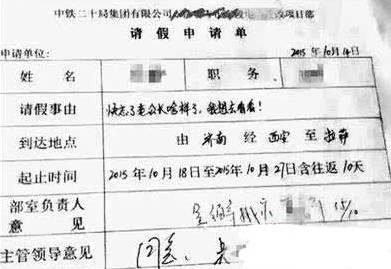 中铁二十局集团有限公司 改项目部
请假申请单
申请单位: 2015年10月14日
姓名 职务
请假事由 快忘了老公长啥样了,我想去看看!
到达地点 由 济南 经 西安 至 拉萨
起止时间 2015年10月18日至2015年10月27日含往返10天
部室负责人
意见 15/10
主管领导意见 同意